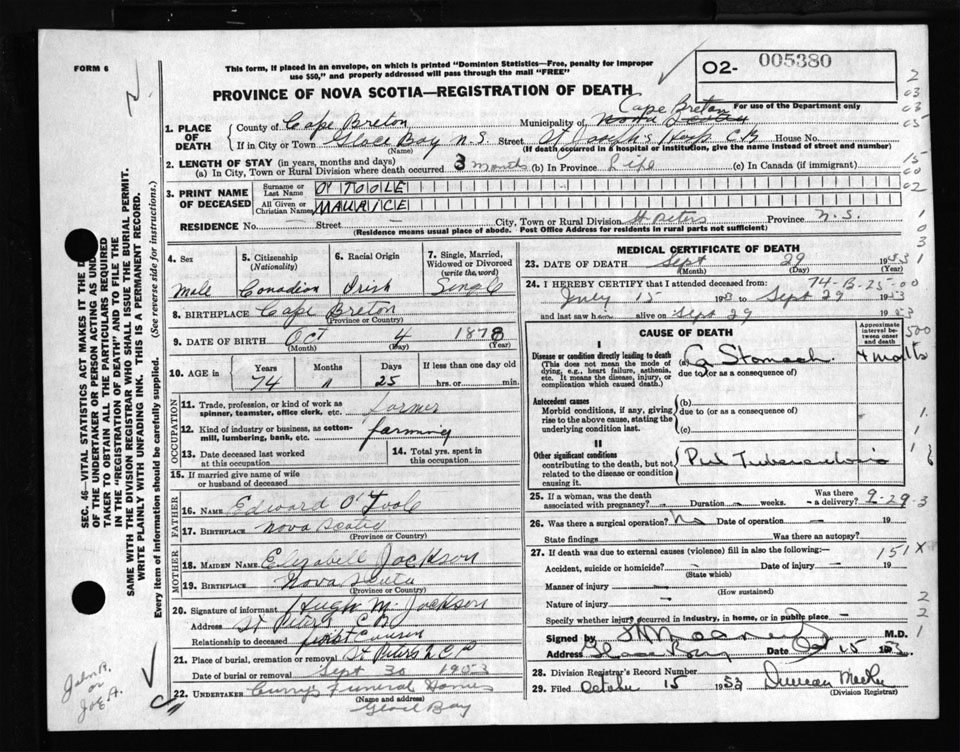 FORM 6
This form, if placed in an envelope, on which is printed "Dominion Statistics—Free, penalty for improper
use $50," and properly addressed will pass through the mail "FREE"
PROVINCE OF NOVA SCOTIA—REGISTRATION OF DEATH
O2- 005380
For use of the Department only
1. PLACE OF DEATH
County of Cape Breton Municipality of Cape Breton
If in City or Town Glace Bay N.S. Street St Joseph's Hosp C.B House No.
(Name) (If death occurred in a hospital or institution, give the name instead of street and number)
2. LENGTH OF STAY (in years, months and days)
(a) In City, Town or Rural Division where death occurred 3 months (b) In Province Life (c) In Canada (if immigrant)
3. PRINT NAME OF DECEASED
Surname or Last Name O'TOOLE
All Given or Christian Names MAURICE
RESIDENCE No. — Street — City, Town or Rural Division St Peters Province N.S.
(Residence means usual place of abode. Post Office Address for residents in rural parts not sufficient)
4. Sex Male
5. Citizenship (Nationality) Canadian
6. Racial Origin Irish
7. Single, Married, Widowed or Divorced (write the word) Single
8. BIRTHPLACE Cape Breton
(Province or Country)
9. DATE OF BIRTH Oct 4 1878
(Month) (Day) (Year)
10. AGE in Years Months Days If less than one day old
74 11 25 hrs. or min.
OCCUPATION
11. Trade, profession, or kind of work as spinner, teamster, office clerk, etc. farmer
12. Kind of industry or business, as cotton-mill, lumbering, bank, etc. farming
13. Date deceased last worked at this occupation
14. Total yrs. spent in this occupation
15. If married give name of wife or husband of deceased
FATHER
16. NAME Edward O'Toole
17. BIRTHPLACE Nova Scotia
(Province or Country)
MOTHER
18. MAIDEN NAME Elizabeth Jackson
19. BIRTHPLACE Nova Scotia
(Province or Country)
20. Signature of informant Hugh M. Jackson
Address St Peters C.B.
Relationship to deceased first Cousin
21. Place of burial, cremation or removal St Peters
Date of burial or removal Sept 30 1953
22. UNDERTAKER Curry's Funeral Home
(Name and address)
Glace Bay
MEDICAL CERTIFICATE OF DEATH
23. DATE OF DEATH Sept 29 1953
(Month) (Day) (Year)
24. I HEREBY CERTIFY that I attended deceased from:
July 15 1953 to Sept 29 1953
and last saw him alive on Sept 29 1953
CAUSE OF DEATH
Approximate interval between onset and death
I
Disease or condition directly leading to death
(This does not mean the mode of dying, e.g., heart failure, asthenia, etc. It means the disease, injury, or complication which caused death.)
(a) Ca Stomach 4 months
due to (or as a consequence of)
Antecedent causes
Morbid conditions, if any, giving rise to the above cause, stating the underlying condition last.
(b)
due to (or as a consequence of)
(c)
II
Other significant conditions
contributing to the death, but not related to the disease or condition causing it.
Pul Tuberculosis
25. If a woman, was the death associated with pregnancy? — Duration — weeks. Was there a delivery?
9-29-3
26. Was there a surgical operation? No Date of operation — 19
State findings Was there an autopsy?
27. If death was due to external causes (violence) fill in also the following:—
151X
Accident, suicide or homicide? — Date of injury — 19
(State which)
Manner of injury —
(How sustained)
Nature of injury —
Specify whether injury occurred in industry, in home, or in public place
Signed by M.D.
Address Glace Bay Date Oct 15
28. Division Registrar's Record Number
29. Filed October 15 1953 Duncan
(Division Registrar)
SEC. 46—VITAL STATISTICS ACT MAKES IT THE
OF THE UNDERTAKER OR PERSON ACTING AS
TAKER TO OBTAIN ALL THE PARTICULARS REQUIRED
IN THE "REGISTRATION OF DEATH" AND TO FILE THE
SAME WITH THE DIVISION REGISTRAR WHO SHALL ISSUE THE BURIAL PERMIT.
WRITE PLAINLY WITH UNFADING INK. THIS IS A PERMANENT RECORD.
Every item of information should be carefully supplied. (See reverse side for instructions.)
John A.
or
Joe A.